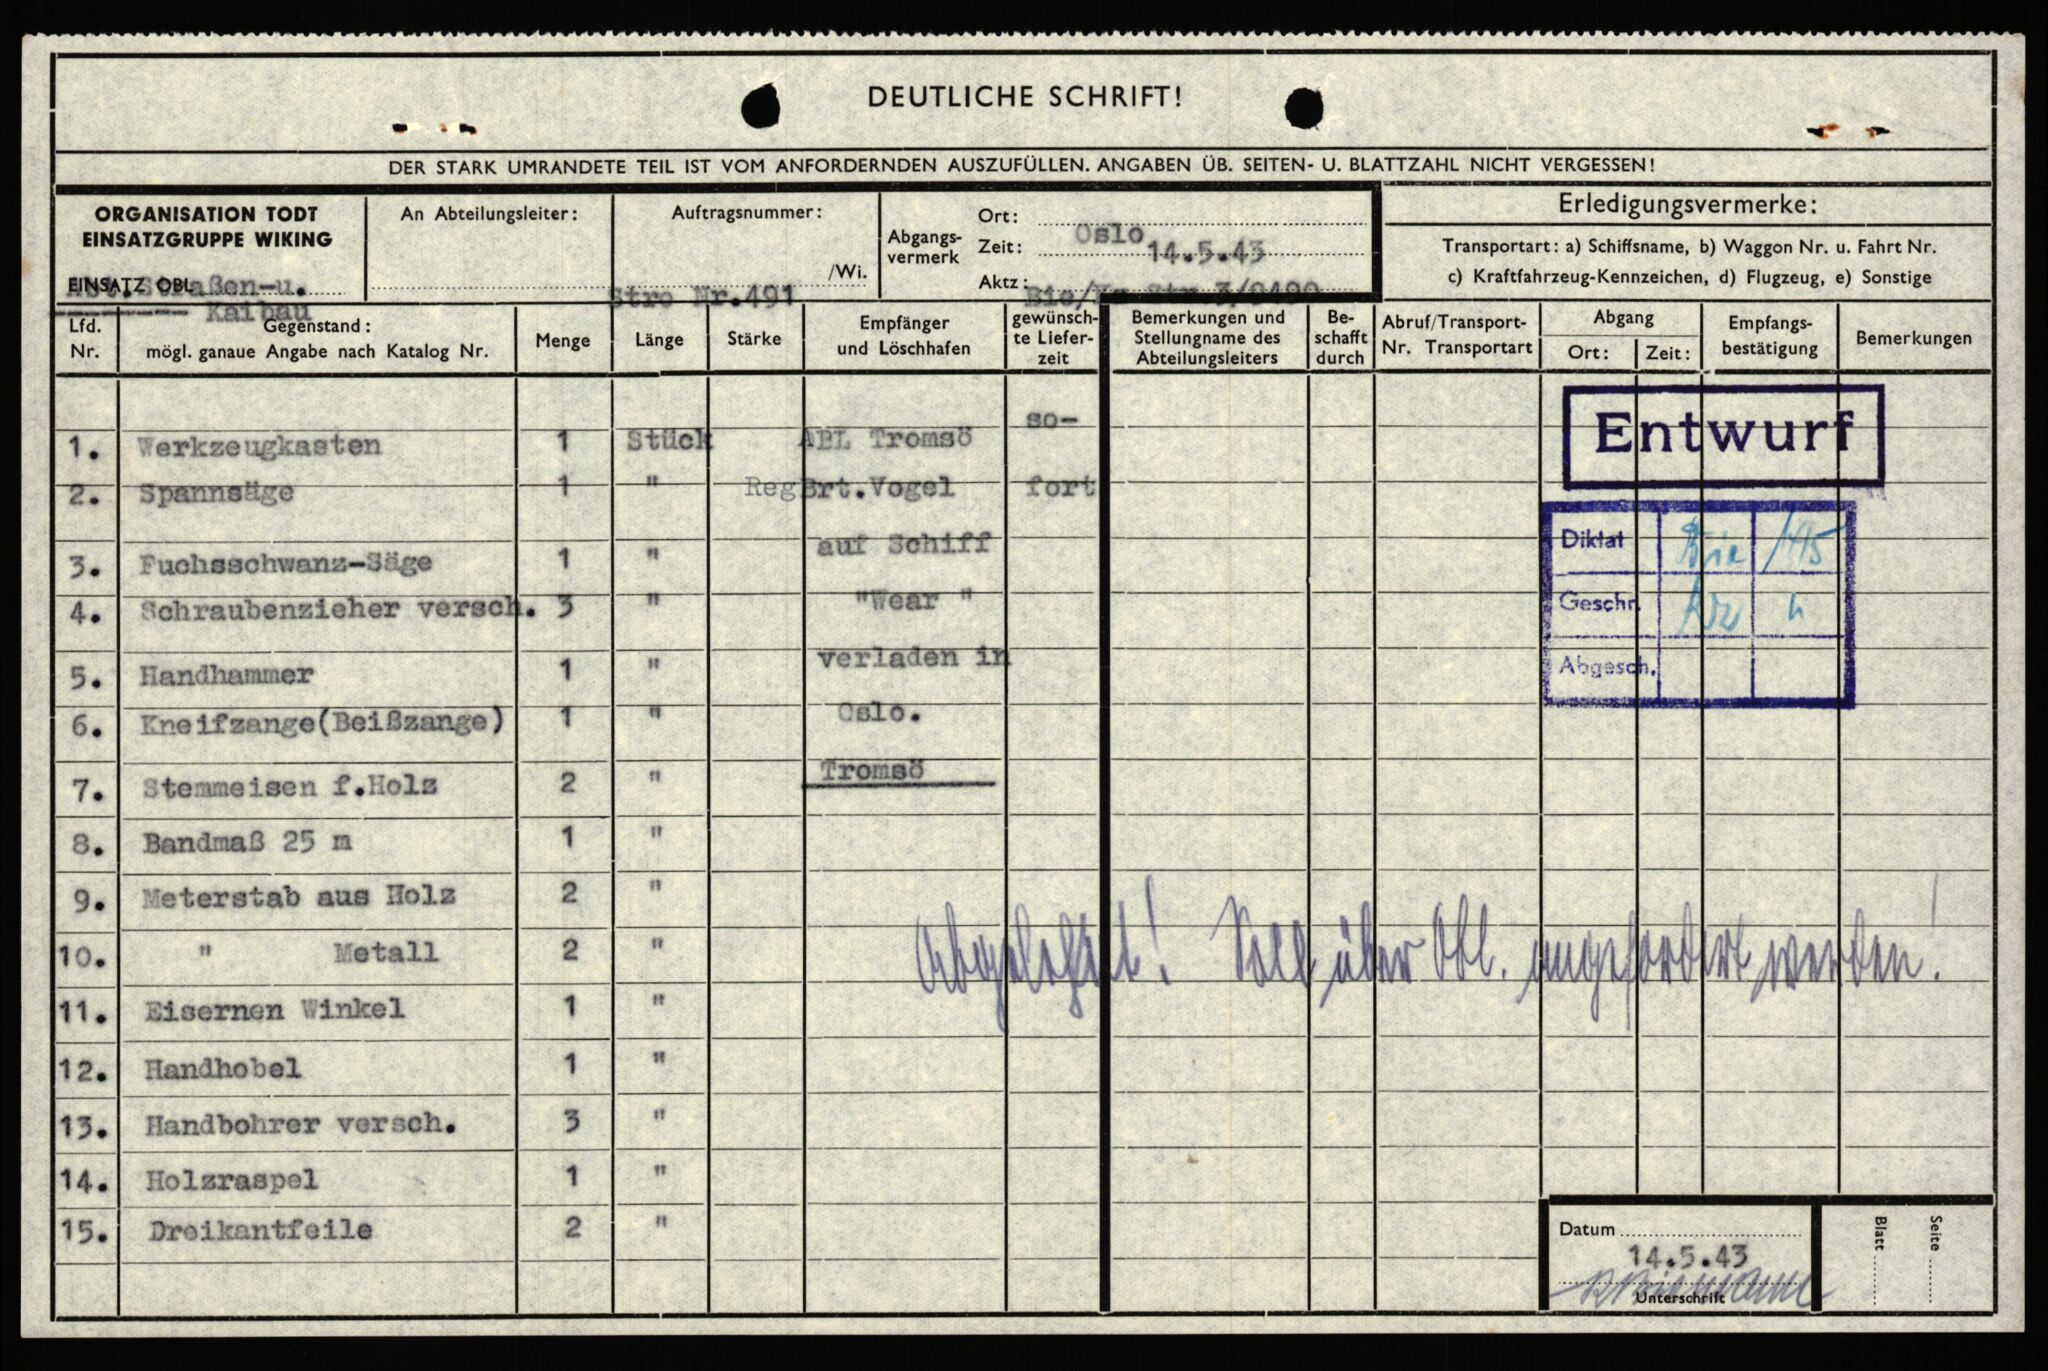 DEUTLICHE SCHRIFT!
DER STARK UMRANDETE TEIL IST VOM ANFORDERNDEN AUSZUFÜLLEN. ANGABEN ÜB. SEITEN- U. BLATTZAHL NICHT VERGESSEN!
ORGANISATION TODT
EINSATZGRUPPE WIKING
EINSATZ OBL
Abt. Straßen-u.
Kaibau
An Abteilungsleiter:
Auftragsnummer:
/Wi.
Stro Nr.491
Abgangs-
vermerk
Ort: Oslo
Zeit: 14.5.43
Aktz:
Erledigungsvermerke:
Transportart: a) Schiffsname, b) Waggon Nr. u. Fahrt Nr.
c) Kraftfahrzeug-Kennzeichen, d) Flugzeug, e) Sonstige
Lfd.
Nr.
Gegenstand:
mögl. ganaue Angabe nach Katalog Nr.
Menge
Länge
Stärke
Empfänger
und Löschhafen
gewünsch-
te Liefer-
zeit
Bemerkungen und
Stellungname des
Abteilungsleiters
Be-
schafft
durch
Abruf/Transport-
Nr. Transportart
Abgang
Ort: Zeit:
Empfangs-
bestätigung
Bemerkungen
1. Werkzeugkasten 1 Stück ABL Tromsö so-
2. Spannsäge 1 " RegBrt.Vogel fort
3. Fuchsschwanz-Säge 1 " auf Schiff
4. Schraubenzieher versch. 3 " "Wear "
5. Handhammer 1 " verladen in
6. Kneifzange(Beißzange) 1 " Oslo.
7. Stemmeisen f.Holz 2 " Tromsö
8. Bandmaß 25 m 1 "
9. Meterstab aus Holz 2 "
10. " Metall 2 "
11. Eisernen Winkel 1 "
12. Handhobel 1 "
13. Handbohrer versch. 3 "
14. Holzraspel 1 "
15. Dreikantfeile 2 "
Entwurf
Diktat Bie 14/5
Geschr. "
Abgesch.
Abgelehnt! Soll über Obl. angefordert werden!
Datum
14.5.43
Unterschrift
Blatt
Seite